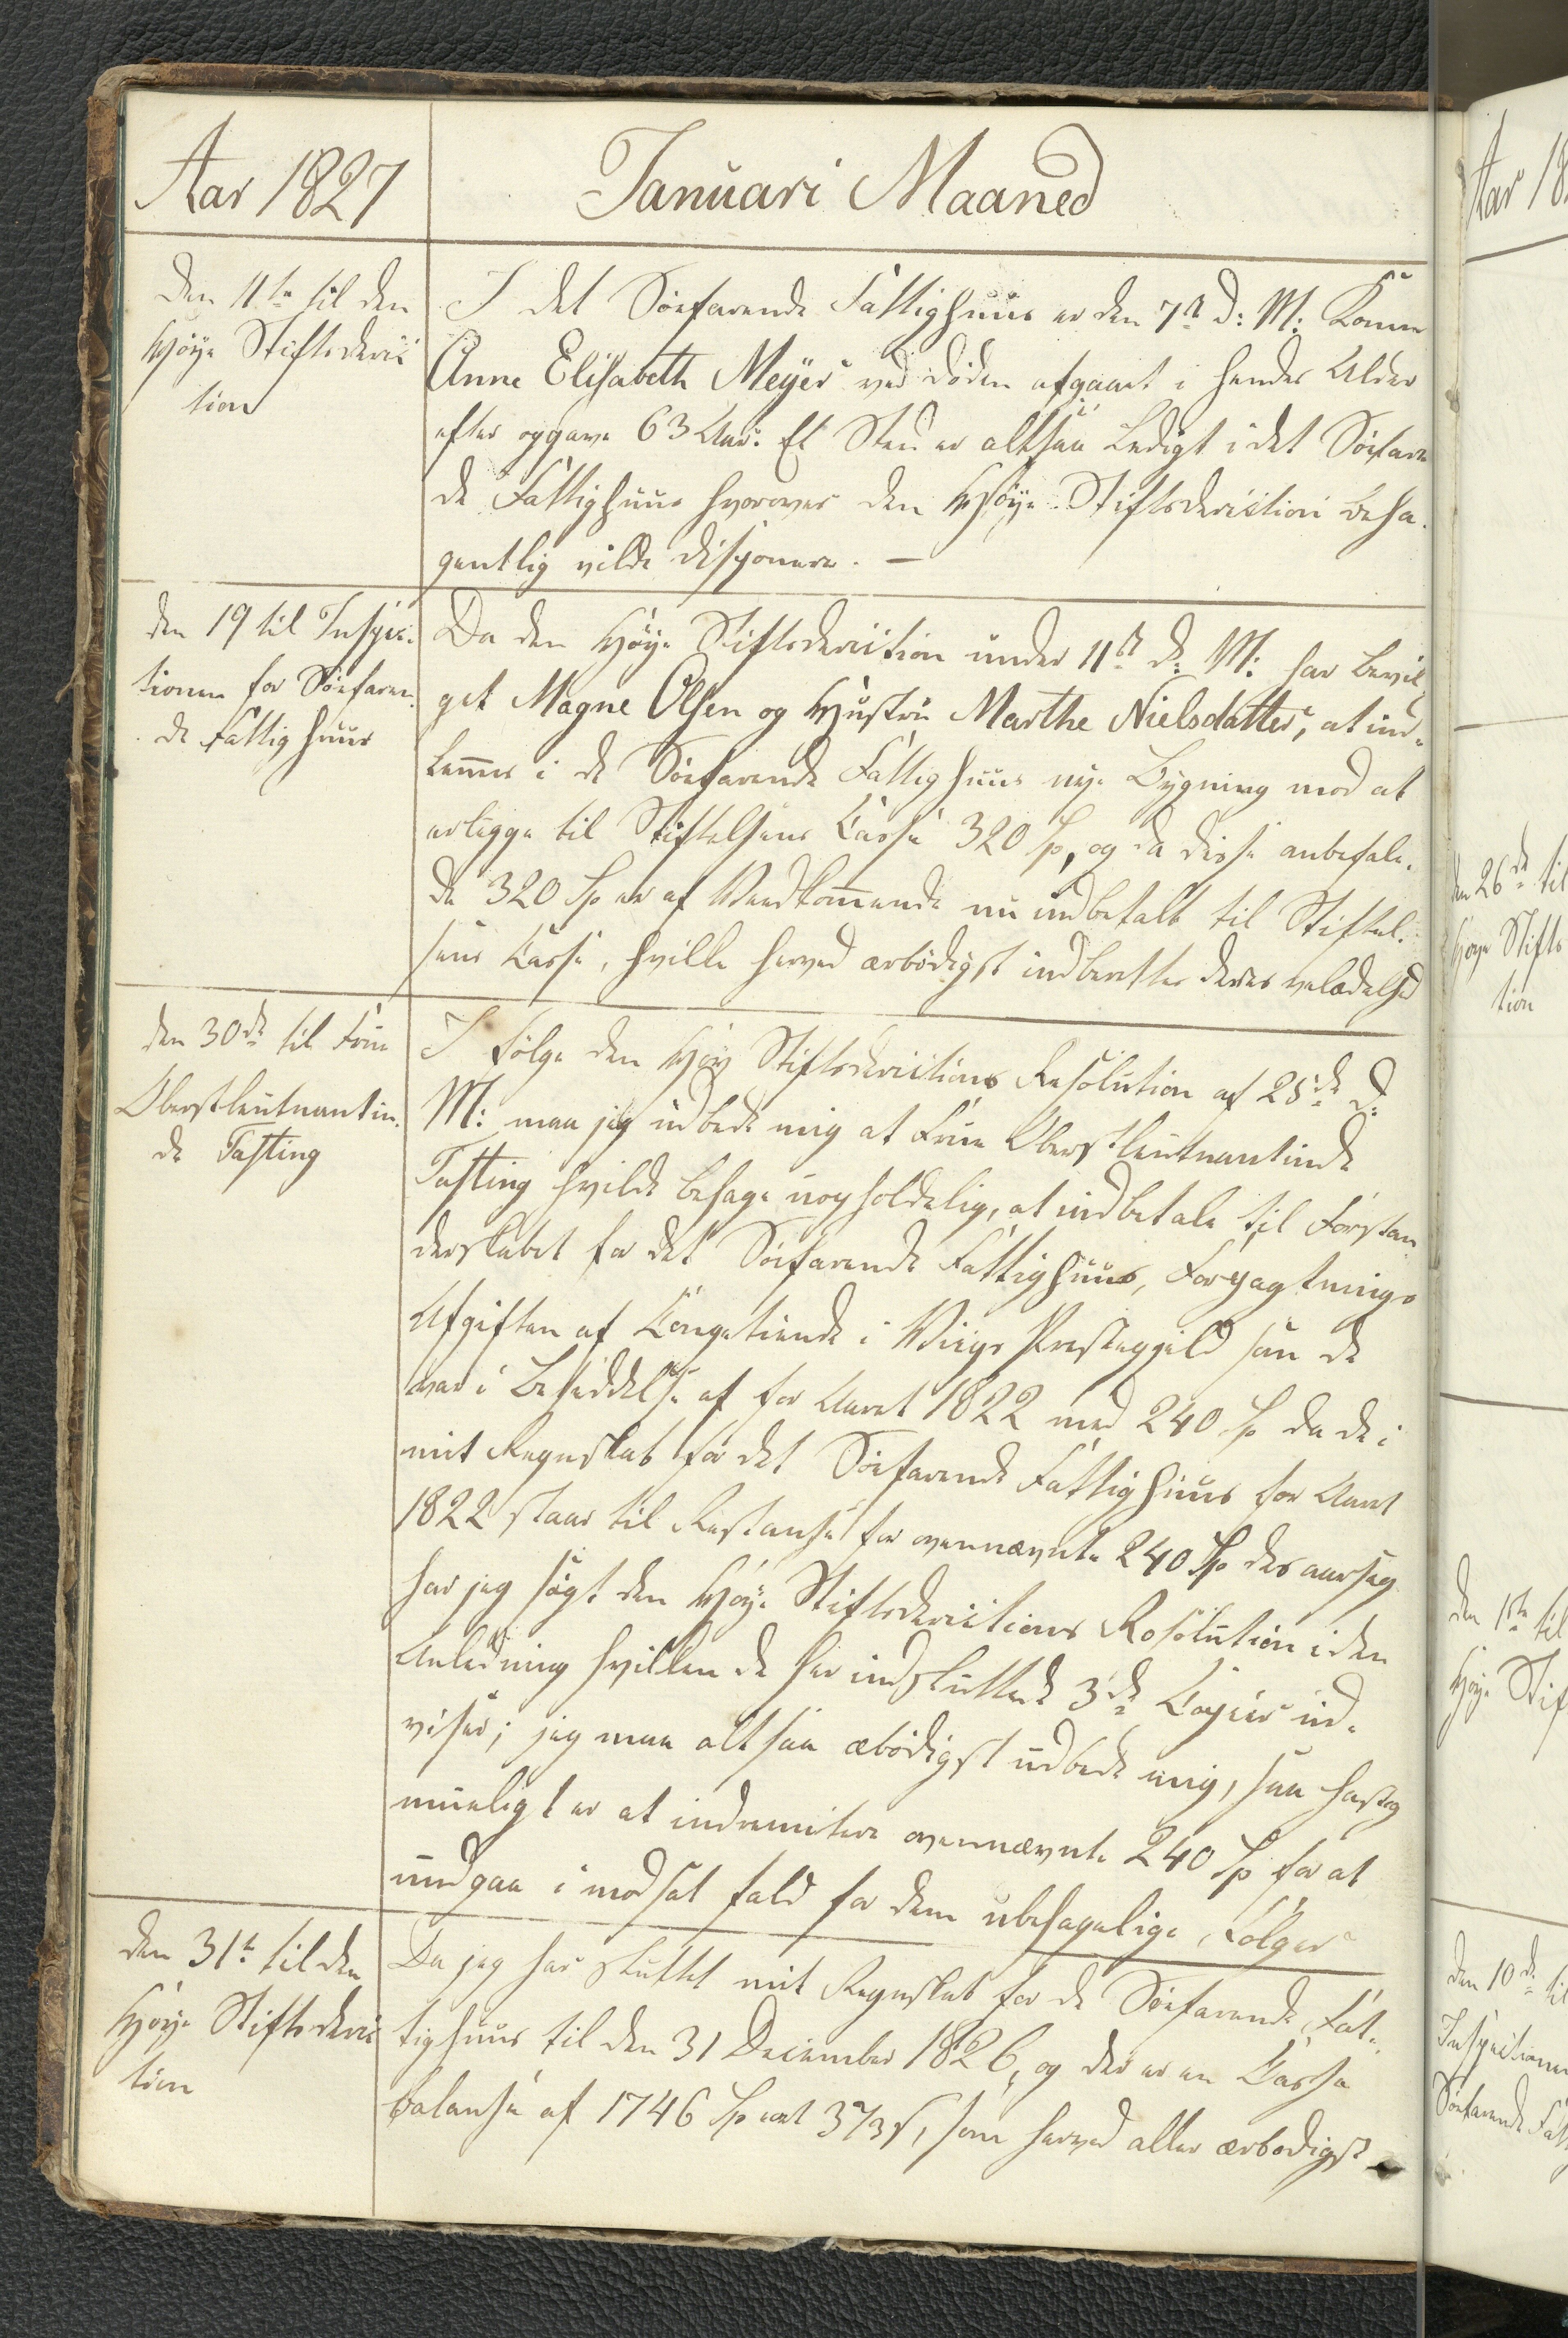 Aar 1827
Januari Maaned
Den 11te til den
Høye Stiftsderic
tion
I det Søefarende Fattighuus er den 7de d: M: Konne
Anne Elisabeth Meyer ved døden afgaaet i hendes Alder
efter opgave 63 Aar. Et Sted er altsaa Ledigt i det Søefaren
de Fattighuus hvorover den Høye Stiftsderiction beha-
gentlig vilde disponere. —
den 19 til Inspec-
tionen for Søefaren-
de Fattighuus
Da den Høye Stiftsderiction under 11te d: M: har bevil
get Magne Olsen og Hustru Marthe Nielsdatter, at ind-
lemes i de Søefarende Fattighuus nye Bygning mod at
erlegge til Stiftelsens Casse 320 Sp, og da disse anbefale-
de 320 Sp er af Vedkommende nu indbetalt til Stiftel-
sens Casse, hvilke herved ærbødigst indberettes deres veladelhed
den 30de til Frue
Oberstleutnantin-
de Fasting
I følge den Høy Stiftsderictions Resolution af 25de d:
M: maa jeg udbede mig at Frue Oberstleutnantinde
Fasting hvilde behage uopholdelig, at indbetale til Forstan
derskabet for det Søefarende Fattighuus, Forpagtnings
Afgiften af Kongetiende i Viigs Prestegjeld som de
var i Besiddelse af for Aaret 1822 med 240 Sp da de i
mit Regnskab for det Søefarende Fattighuus for Aaret
1822 staar til Restanse for ovennævnte 240 Sp des aarsag
har jeg søgt den Høye Stiftsderictions Resolution i den
Anledning hvilken de her indsluttede 3de Copier ud-
viser; jeg maa altsaa æbødigst udbede mig, saa hastig
mueligt er at indremitere ovennævnte 240 Sp for at
undgaa i modsat fald for dem ubehagelige Følger
den 31te til den
Høye Stiftsderic
tion
Da jeg har sluttet mit Regnskab for de Søefarende Fat-
tighuus til den 31 December 1826, og der er en Casse
balanse af 1746 Sp ort 3 7/3 s, som herved aller ærbødigst
Aar 18
den 26de til
Høye Stifts
tion
den 1te til
Høye Stif
den 10de til
Inspectionen
Søefarende Fatt